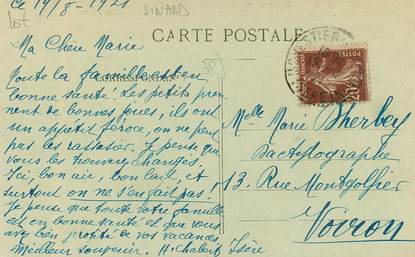 ce 19/8 - 1921
SINARD
Lot
CARTE POSTALE
CORRESPONDANCE
Ma Chère Marie
Toute la famille est en
bonne santé. Les petits pren-
nent de bonnes joues, ils ont
un appétit féroce, on ne peut
pas les rassasier. Je pense que
vous les trouverez changés.
Ici, bon air, bon lait, et
surtout on ne s'en fait pas !
Je pense que toute votre famille
est en bonne santé et que vous
avez bien profité de vos vacances.
Meilleur souvenir. H. Chabert
MONESTIER
POSTES
20c
Melle Marie Dherbey
Dactylographe
13, Rue Montgolfier
Voiron
Isère